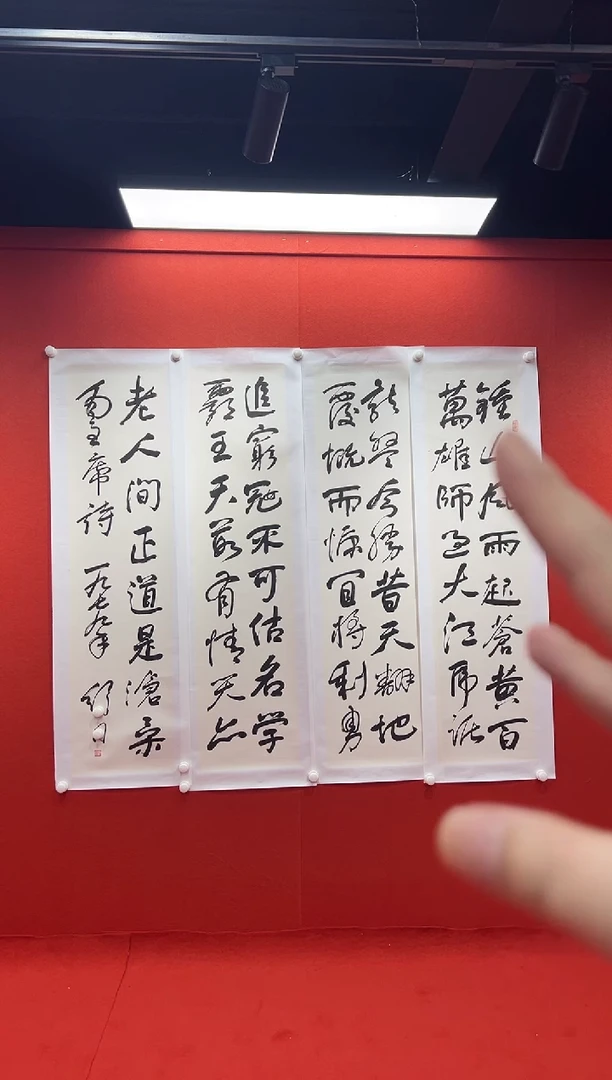 鍾山风雨起蒼黄百
萬雄師過大江虎踞
龍盤今勝昔天翻地
覆慨而慷宜将剩勇
追窮冦不可沽名学
霸王天若有情天亦
老人間正道是滄桑
毛主席詩 一九七九年 舒同